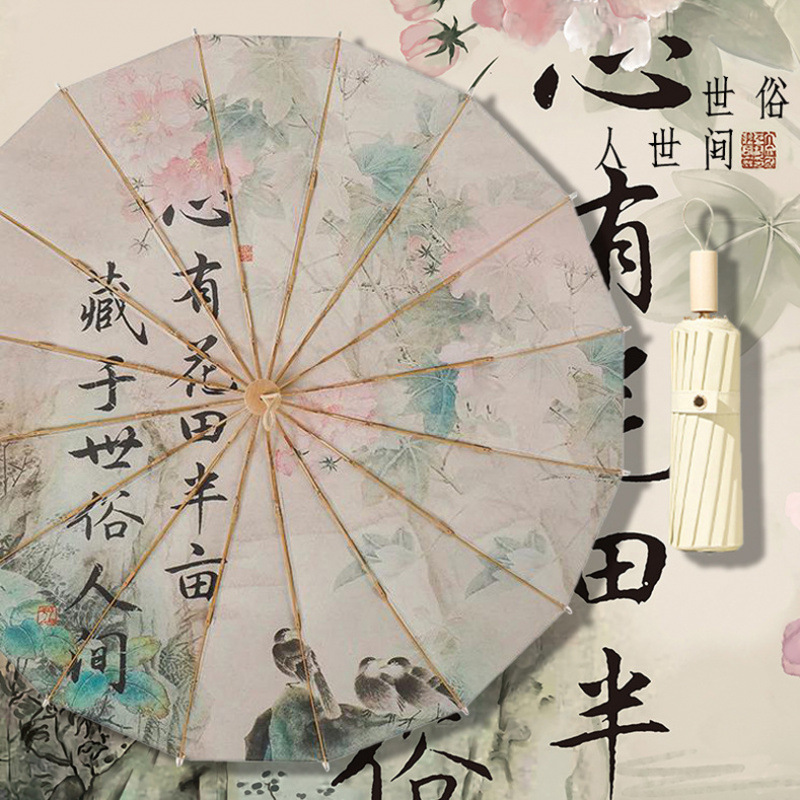 心有花田半亩
藏于世俗人间
心有花田半
俗
世俗
人世间